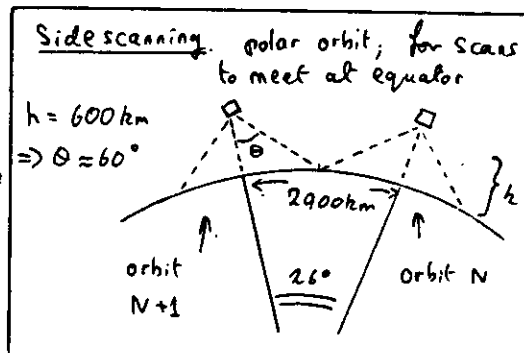 Side scanning. polar orbit; for scans
to meet at equator
h = 600 km
=> θ ≈ 60°
θ
2900km
h
26°
orbit
N+1
orbit N